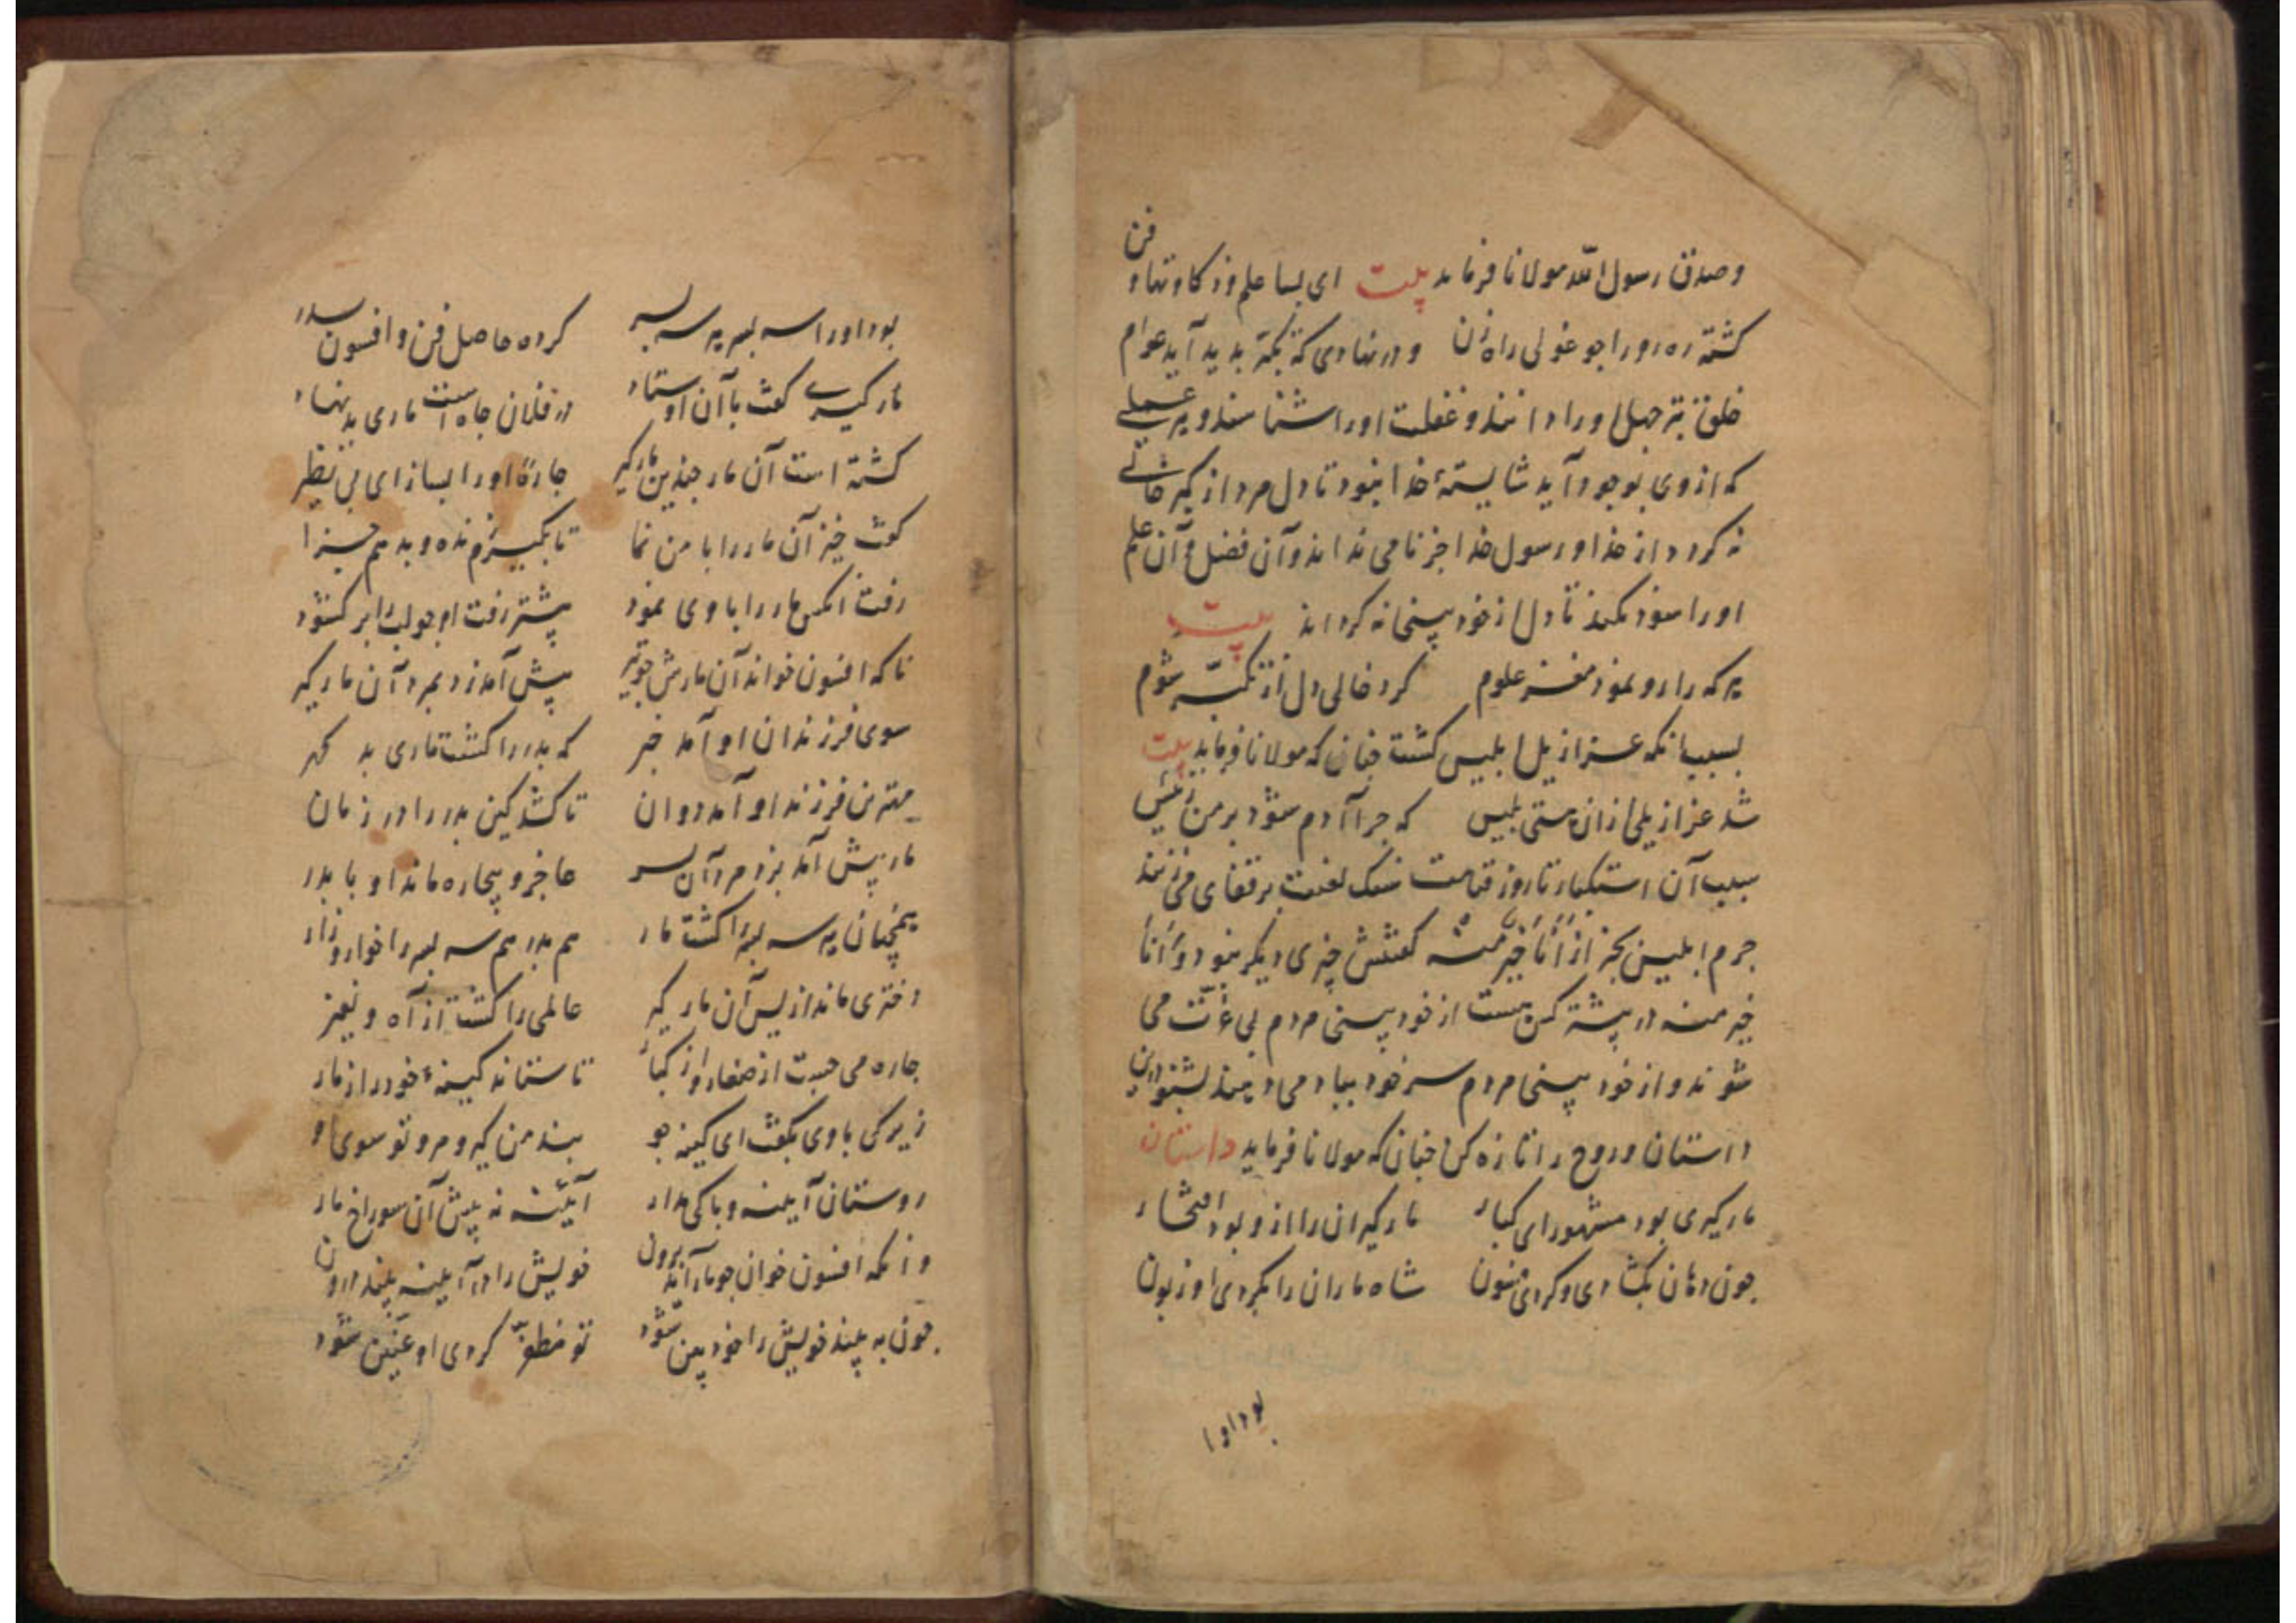 و صدق رسول الله مولانا فرماید بیت ای بسا علم و ذکاوتها و فن
کشته ره رو را چو غولی راه زن و در نهادی که تکبّر بدید آید عوام
خلق بتر جهل او را دانند و غفلت او را شناسند و هر عملی
که از وی بوجود آید شایستهٔ خدا نبود تا دل مرد از کبر خالی
نه کردد از خدا و رسول خدا جز نامی نداند و آن فضل و آن علم
او را سود نکند تا دل از خود بینی نه کرداند بیت
هر که را رو نمود مغز علوم کرد خالی دل از تکبّر شوم
بسبب انکه عزازیل ابلیس کشت چنان که مولانا فرماید بیت
شد عزازیلی ازان مستی بلیس که چرا آدم شود بر من رئیس
سبب آن استکبار تا روز قیامت سنک لعنت بر قفای می زنند
جرم ابلیس بجز از أَنَا خَیْرٌ مِنْه کفتنش چیزی دیکر نبود و أَنَا
خیر منه در بیشتر کس هست از خود بینی مردم بی عزّت می
شوند و از خود بینی مردم سر خود بباد می دهند بشنو این
داستان و روح را تازه کن چنان که مولانا فرماید داستان
مارکیری بود مشهور ای کبار مارکیران را ازو بود افتخار
چون دهان بکشادی و کردی فسون شاه ماران را بکردی او زبون
بود او را
بود او را سه پسر هر سه پسر کرده حاصل فن و افسون پدر
مارکیری کفت با آن اوستاد در فلان جاه است ماری بد نهاد
کشته است آن مار چندین مارکیر چارهٔ او را بساز ای بی نظیر
کفت خیز آن مار را با من نما تا بکیرم زنده و بدهم جزا
رفت انکس مار را با وی نمود پیشتر رفت او چو لب را بر کشود
تا که افسون خواند آن مارش چو تیر پیش آمد زد بمرد آن مارکیر
سوی فرزندان او آمد خبر که پدر را کشت ماری بد کهر
مهترین فرزند او آمد دوان تا کشد کین پدر را در زمان
مار پیش آمد بزد مرد آن پسر عاجز و بیچاره ماند او با پدر
همچنان هر سه پسر را کشت مار هم پدر هم سه پسر را خوار و زار
دختری ماند از پس آن مارکیر عالمی را کشت از آه و نفیر
چاره می جست از صغار و از کبار تا ستاند کینهٔ خود را ز مار
زیرکی با وی بکفت ای کینه جو پند من کیر و مرو تو سوی او
رو ستان آیینه و باکی مدار آیینه نه پیش آن سوراخ مار
وانکه افسون خوان چو مار آید برون خویش را در آیینه بیند درون
چون به بیند خویش را خود بین شود تو مظفّر کردی او غمین شود